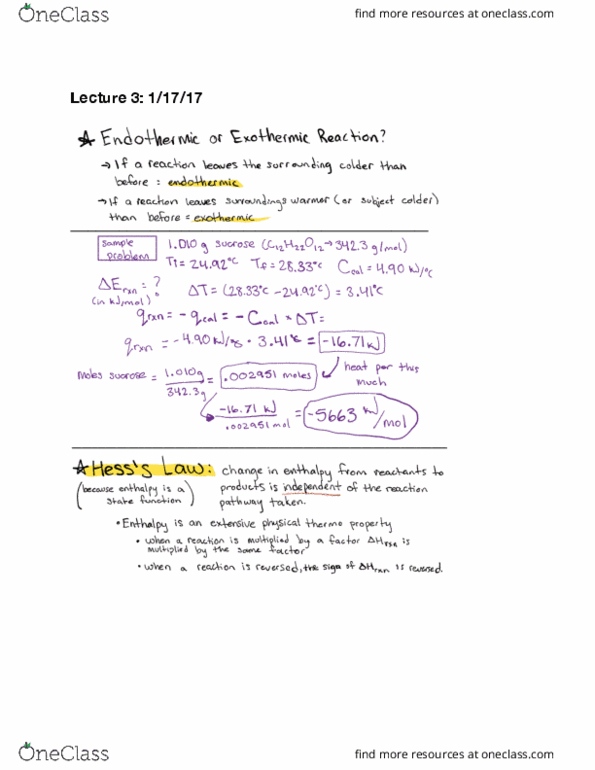 OneClass
find more resources at oneclass.com
Lecture 3: 1/17/17
★ Endothermic or Exothermic Reaction?
→ If a reaction leaves the surrounding colder than
before : endothermic
→ If a reaction leaves surroundings warmer (or subject colder)
than before = exothermic
Sample problem
1.010 g sucrose (C12H22O12 → 342.3 g/mol)
Ti = 24.92°C Tf = 28.33°C Ccal = 4.90 kJ/°C
ΔErxn = ?
(in kJ/mol)
ΔT = (28.33°C - 24.92°C) = 3.41°C
qrxn = - qcal = - Ccal × ΔT =
qrxn = -4.90 kJ/°C · 3.41°C = -16.71 kJ
moles sucrose = 1.010g / 342.3g = .002951 moles
heat for this much
-16.71 kJ / .002951 mol = -5663 kJ/mol
★ Hess's Law: change in enthalpy from reactants to
(because enthalpy is a state function) products is independent of the reaction
pathway taken.
• Enthalpy is an extensive physical thermo property
• when a reaction is multiplied by a factor ΔHrxn is
multiplied by the same factor
• when a reaction is reversed, the sign of ΔHrxn is reversed.
OneClass
find more resources at oneclass.com